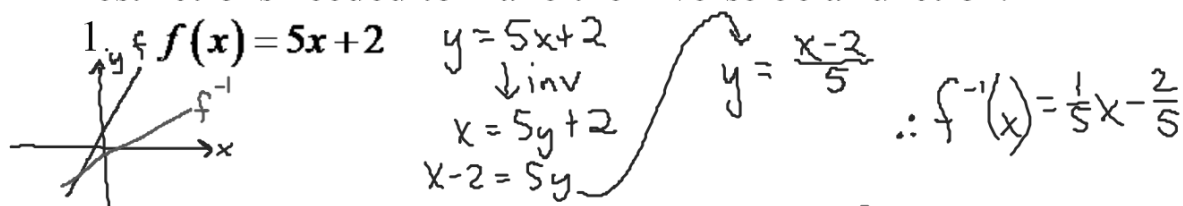 1. f(x) = 5x+2
y
f
f⁻¹
x
y = 5x+2
↓ inv
x = 5y+2
x-2 = 5y
y = (x-2)/5
∴ f⁻¹(x) = 1/5 x - 2/5